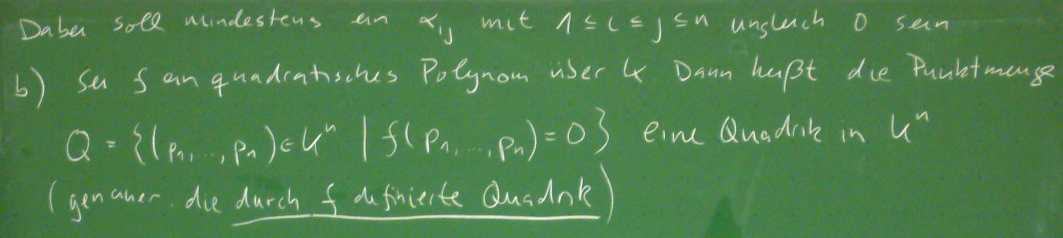 Dabei soll mindestens ein α_ij mit 1 ≤ i ≤ j ≤ n ungleich 0 sein
b) Sei f ein quadratisches Polynom über K Dann heißt die Punktmenge
Q = {(p₁,...,pₙ) ∈ Kⁿ | f(p₁,...,pₙ) = 0} eine Quadrik in Kⁿ
(genauer. die durch f definierte Quadrik)